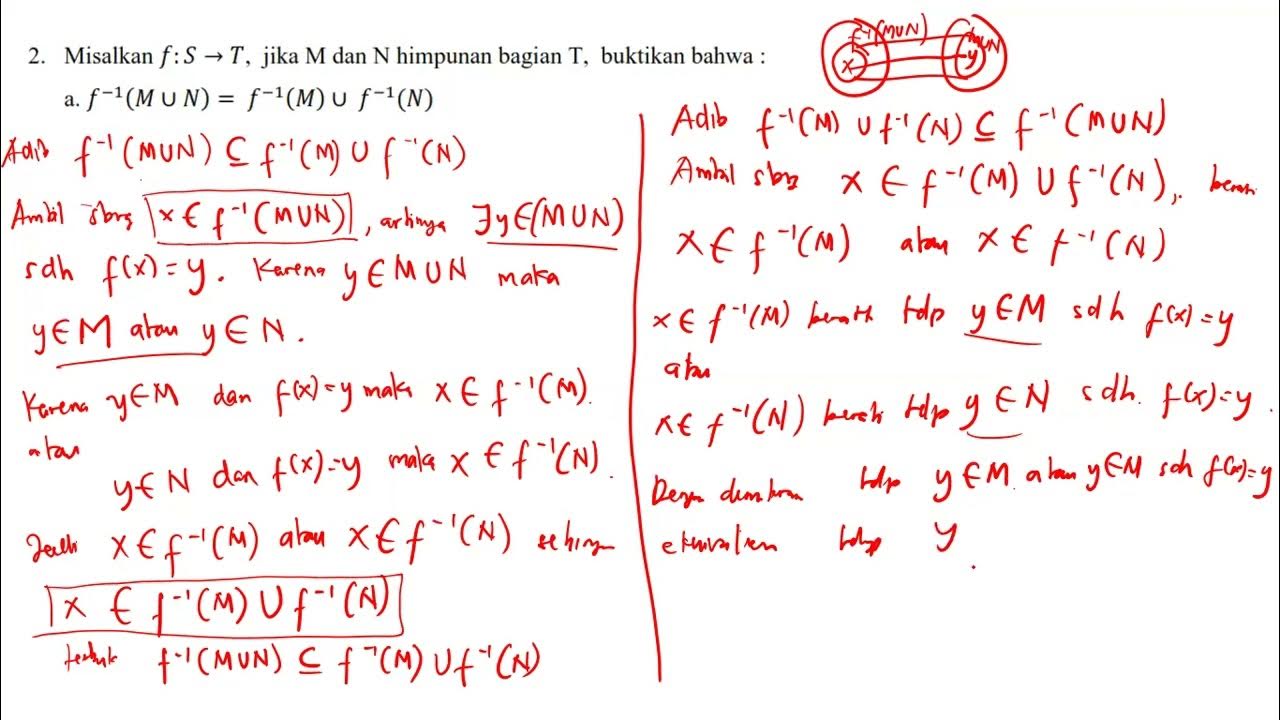 2. Misalkan f: S → T, jika M dan N himpunan bagian T, buktikan bahwa :
a. f⁻¹(M ∪ N) = f⁻¹(M) ∪ f⁻¹(N)
f⁻¹(M∪N)
M∪N
x
y
Adib f⁻¹(M∪N) ⊆ f⁻¹(M) ∪ f⁻¹(N)
Ambil sbrg x ∈ f⁻¹(M∪N), artinya ∃y∈(M∪N)
sdh f(x) = y. Karena y ∈ M∪N maka
y∈M atau y∈N.
Karena y∈M dan f(x)=y maka x ∈ f⁻¹(M).
atau
y∈N dan f(x)=y maka x ∈ f⁻¹(N).
Jadi x∈f⁻¹(M) atau x∈f⁻¹(N) sehingga
x ∈ f⁻¹(M) ∪ f⁻¹(N)
terbukti f⁻¹(M∪N) ⊆ f⁻¹(M) ∪ f⁻¹(N)
Adib f⁻¹(M) ∪ f⁻¹(N) ⊆ f⁻¹(M∪N)
Ambil sbrg x ∈ f⁻¹(M) ∪ f⁻¹(N), berarti
x∈f⁻¹(M) atau x∈f⁻¹(N)
x∈f⁻¹(M) berarti tdp y∈M sdh f(x)=y
atau
x∈f⁻¹(N) berarti tdp y∈N sdh. f(x)=y.
Dengan demikian tdp y∈M. atau y∈M sdh f(x)=y
ekuivalen tdp y